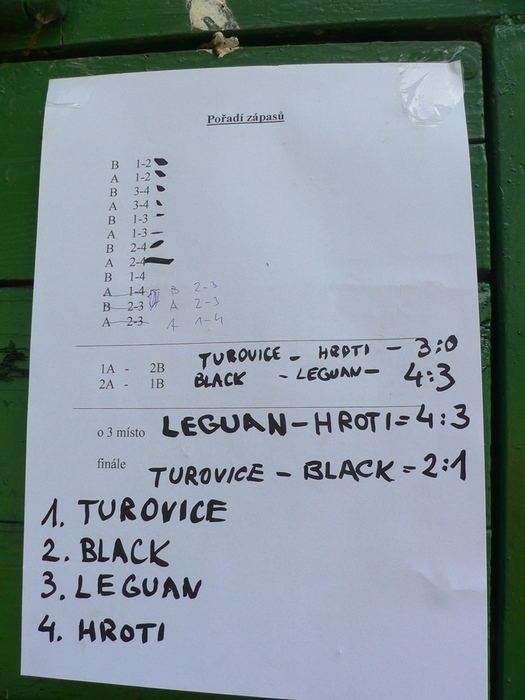 Pořadí zápasů
B 1-2
A 1-2
B 3-4
A 3-4
B 1-3
A 1-3
B 2-4
A 2-4
B 1-4
A 1-4 B 2-3
B 2-3 A 2-3
A 2-3 A 1-4
1A - 2B TUROVICE - HROTI - 3:0
2A - 1B BLACK - LEGUAN - 4:3
o 3 místo LEGUAN - HROTI = 4:3
finále TUROVICE - BLACK = 2:1
1. TUROVICE
2. BLACK
3. LEGUAN
4. HROTI